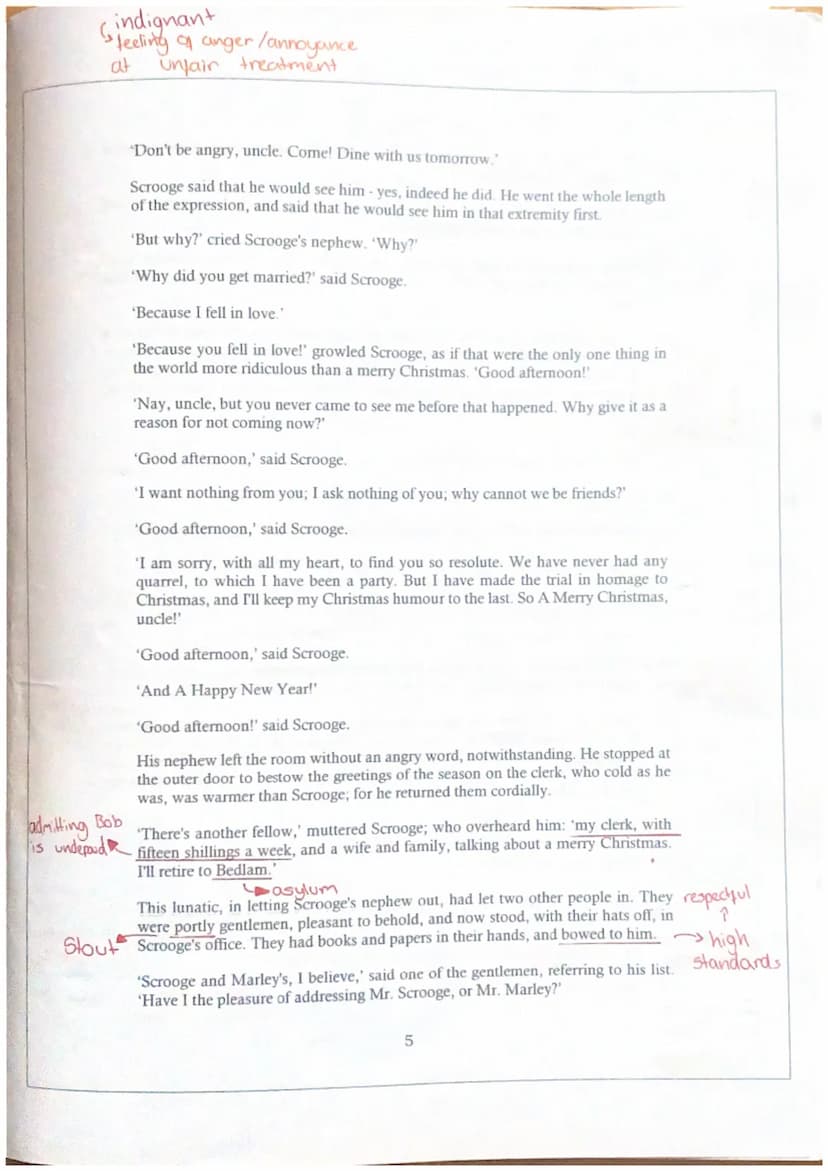 indignant
feeling of anger/annoyance
at unfair treatment
'Don't be angry, uncle. Come! Dine with us tomorrow.'
Scrooge said that he would see him - yes, indeed he did. He went the whole length
of the expression, and said that he would see him in that extremity first.
'But why?' cried Scrooge's nephew. 'Why?'
'Why did you get married?' said Scrooge.
'Because I fell in love.'
'Because you fell in love!' growled Scrooge, as if that were the only one thing in
the world more ridiculous than a merry Christmas. 'Good afternoon!'
'Nay, uncle, but you never came to see me before that happened. Why give it as a
reason for not coming now?'
'Good afternoon,' said Scrooge.
'I want nothing from you; I ask nothing of you; why cannot we be friends?'
'Good afternoon,' said Scrooge.
'I am sorry, with all my heart, to find you so resolute. We have never had any
quarrel, to which I have been a party. But I have made the trial in homage to
Christmas, and I'll keep my Christmas humour to the last. So A Merry Christmas,
uncle!'
'Good afternoon,' said Scrooge.
'And A Happy New Year!'
'Good afternoon!' said Scrooge.
His nephew left the room without an angry word, notwithstanding. He stopped at
the outer door to bestow the greetings of the season on the clerk, who cold as he
was, was warmer than Scrooge; for he returned them cordially.
admitting Bob
is underpaid
'There's another fellow,' muttered Scrooge; who overheard him: 'my clerk, with
fifteen shillings a week, and a wife and family, talking about a merry Christmas.
I'll retire to Bedlam.'
asylum
This lunatic, in letting Scrooge's nephew out, had let two other people in. They
were portly gentlemen, pleasant to behold, and now stood, with their hats off, in
Scrooge's office. They had books and papers in their hands, and bowed to him.
Stout
respectful
high
standards
'Scrooge and Marley's, I believe,' said one of the gentlemen, referring to his list.
'Have I the pleasure of addressing Mr. Scrooge, or Mr. Marley?'
5